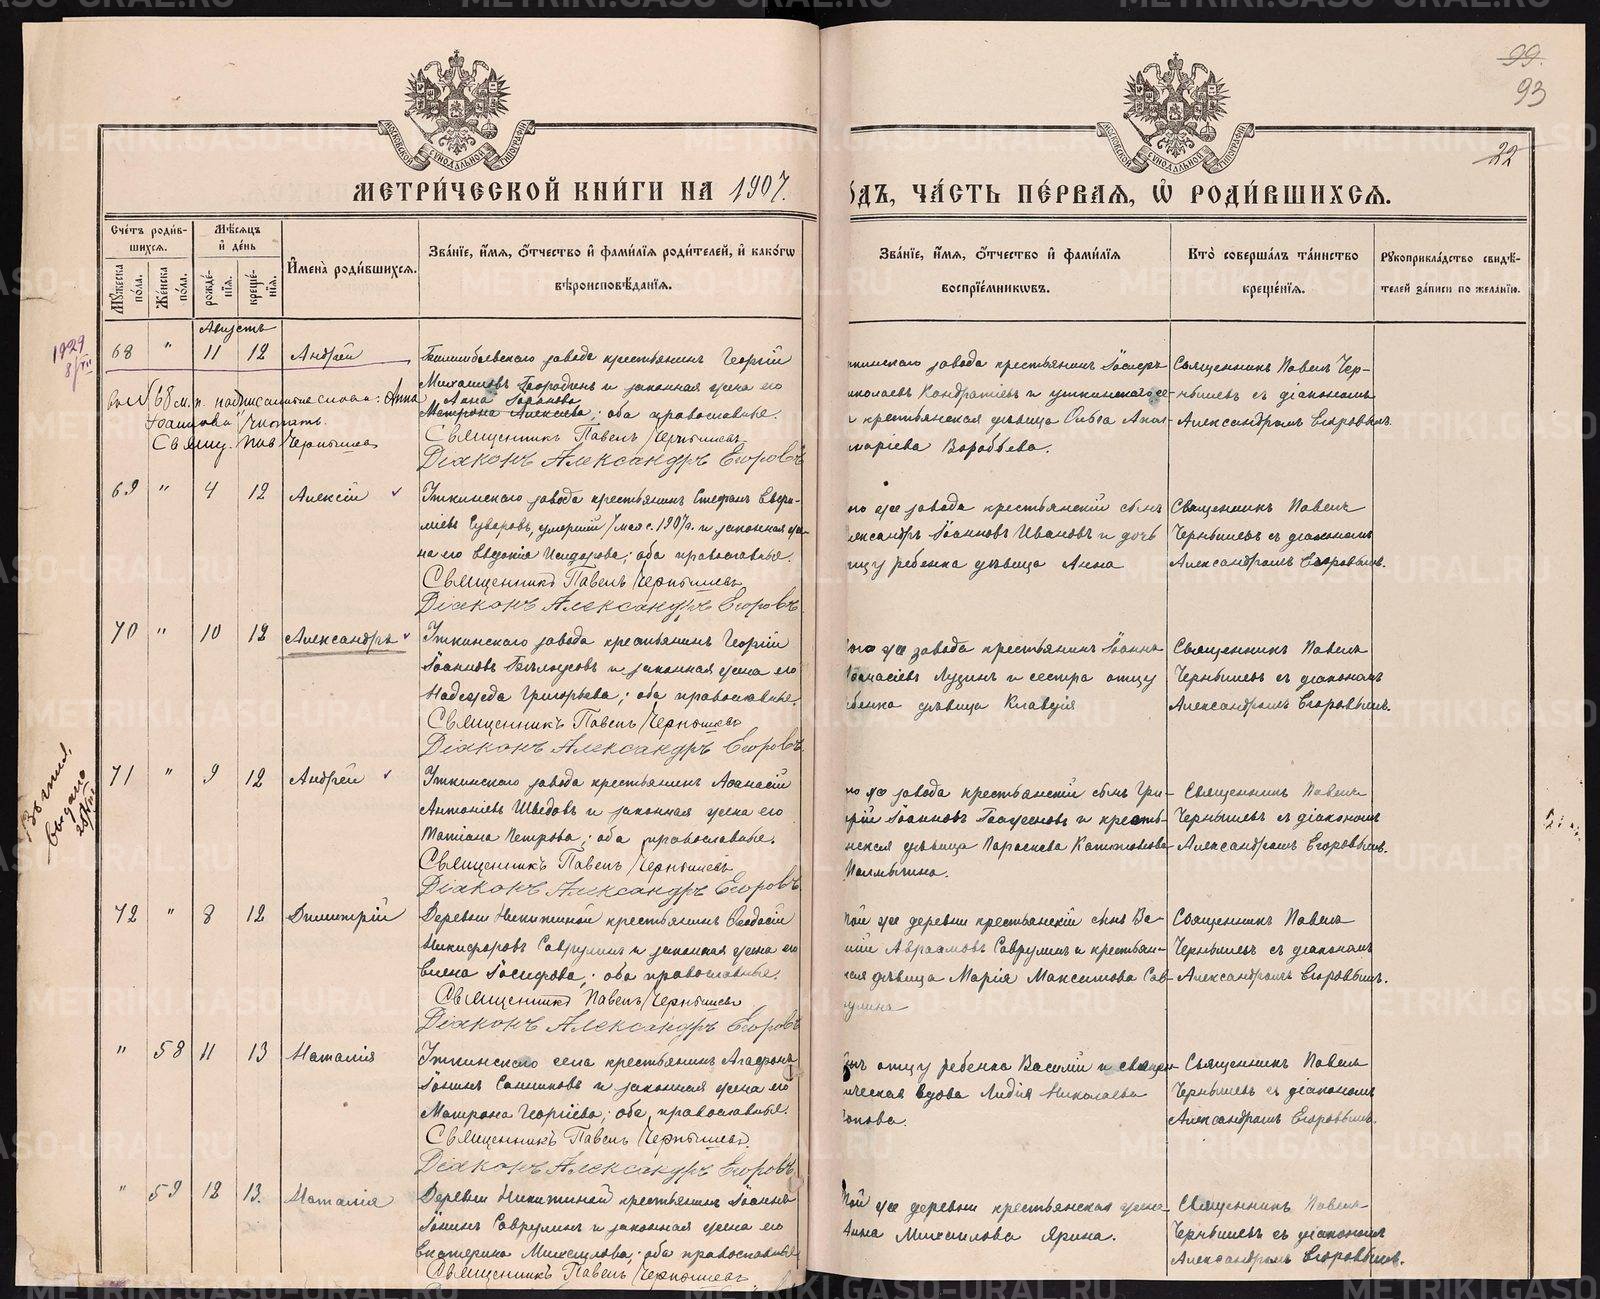 99.
93
22
МОСКОВСКОЙ СУНОДАЛЬНОЙ ТИПОГРАФІИ
МОСКОВСКОЙ СУНОДАЛЬНОЙ ТИПОГРАФІИ
МЕТРИ́ЧЕСКОЙ КНИ́ГИ НА 1907.
ОДЪ, ЧА́СТЬ ПЕ́РВАЯ, Ѡ РОДИ́ВШИХСЯ.
Сче́тъ роди́в-
шихся.
Мꙋ́жеска по́ла.
Же́нска по́ла.
Мѣ́сяцъ и де́нь
рожде́-
нія.
креще́-
нія.
И҆мена̀ роди́вшихся.
Зва́ніе, и҆́мя, ѻ҆́тчество и҆ фами́лія роди́телей, и҆ како́гѡ
вѣроисповѣ́данія.
Зва́ніе, и҆́мя, ѻ҆́тчество и҆ фами́лія
воспріе́мникѡвъ.
Кто̀ соверша́лъ та́инство
креще́нія.
Рꙋкоприкла́дство свидѣ́-
телей за́писи по жела́нію.
Августъ
1929
8/XII
68 " 11 12 Андрей
Билимбаевскаго завода крестьянинъ Георгій
Михаиловъ и законная жена его
Анна
Матрона Алексѣева; оба православные.
Священникъ Павелъ Чернышевъ
Діаконъ Александръ Егоровъ
68 м.п. надписанные слова: Анна
читать.
Свящ. Пав. Чернышевъ
завода крестьянинъ
Кондратіевъ и уткинскаго се-
крестьянская дѣвица Ольга
Воробьева.
Священникъ Павелъ Чер-
нышевъ съ діакономъ
Александромъ Егоровымъ.
69 " 4 12 Алексій
Уткинскаго завода крестьянинъ Стефанъ
Суворовъ, умершій 1907 г. и законная же-
на его Евдокія Исидорова; оба православные.
Священникъ Павелъ Чернышевъ
Діаконъ Александръ Егоровъ
же завода крестьянскій сынъ
Іоанновъ Ивановъ и дочь
отцу ребенка дѣвица Анна
Священникъ Павелъ
Чернышевъ съ діакономъ
Александромъ Егоровымъ.
70 " 10 12 Александръ
Уткинскаго завода крестьянинъ Георгій
Іоанновъ Бѣлоусовъ и законная жена его
Надежда Григорьева; оба православные.
Священникъ Павелъ Чернышевъ
Діаконъ Александръ Егоровъ
же завода крестьянинъ Іоаннъ
Лузинъ и сестра отцу
дѣвица Клавдія
Священникъ Павелъ
Чернышевъ съ діакономъ
Александромъ Егоровымъ.
выдано
71 " 9 12 Андрей
Уткинскаго завода крестьянинъ Аѳанасій
Антоніевъ Шведовъ и законная жена его
Татіана Петрова; оба православные.
Священникъ Павелъ Чернышевъ
Діаконъ Александръ Егоровъ
же завода крестьянскій сынъ Гри-
Іоанновъ и кресть-
дѣвица Параскева
Священникъ Павелъ
Чернышевъ съ діакономъ
Александромъ Егоровымъ.
72 " 8 12 Димитрій
Деревни Никитиной крестьянинъ Ѳеодосій
Никифоровъ Саврулинъ и законная жена его
Елена Іосифова; оба православные.
Священникъ Павелъ Чернышевъ
Діаконъ Александръ Егоровъ
же деревни крестьянскій сынъ Ва-
Авраамовъ Саврулинъ и крестьян-
ская дѣвица Марія Максимова Сав-
рулина
Священникъ Павелъ
Чернышевъ съ діакономъ
Александромъ Егоровымъ.
" 58 11 13 Наталія
Уткинскаго села крестьянинъ Агаѳонъ
Іонинъ Санниковъ и законная жена его
Матрона Георгіева; оба православные.
Священникъ Павелъ Чернышевъ
Діаконъ Александръ Егоровъ
отцу ребенка Василій и священ-
ническая вдова Лидія Николаева
Попова.
Священникъ Павелъ
Чернышевъ съ діакономъ
Александромъ Егоровымъ.
" 59 12 13. Наталія
Деревни Никитиной крестьянинъ Іоаннъ
Іонинъ Саврулинъ и законная жена его
Екатерина Михаилова; оба православные
Священникъ Павелъ Чернышевъ
же деревни крестьянская жена
Анна Михаилова Ярина.
Священникъ Павелъ
Чернышевъ съ діакономъ
Александромъ Егоровымъ.
METRIKI.GASO-URAL.RU